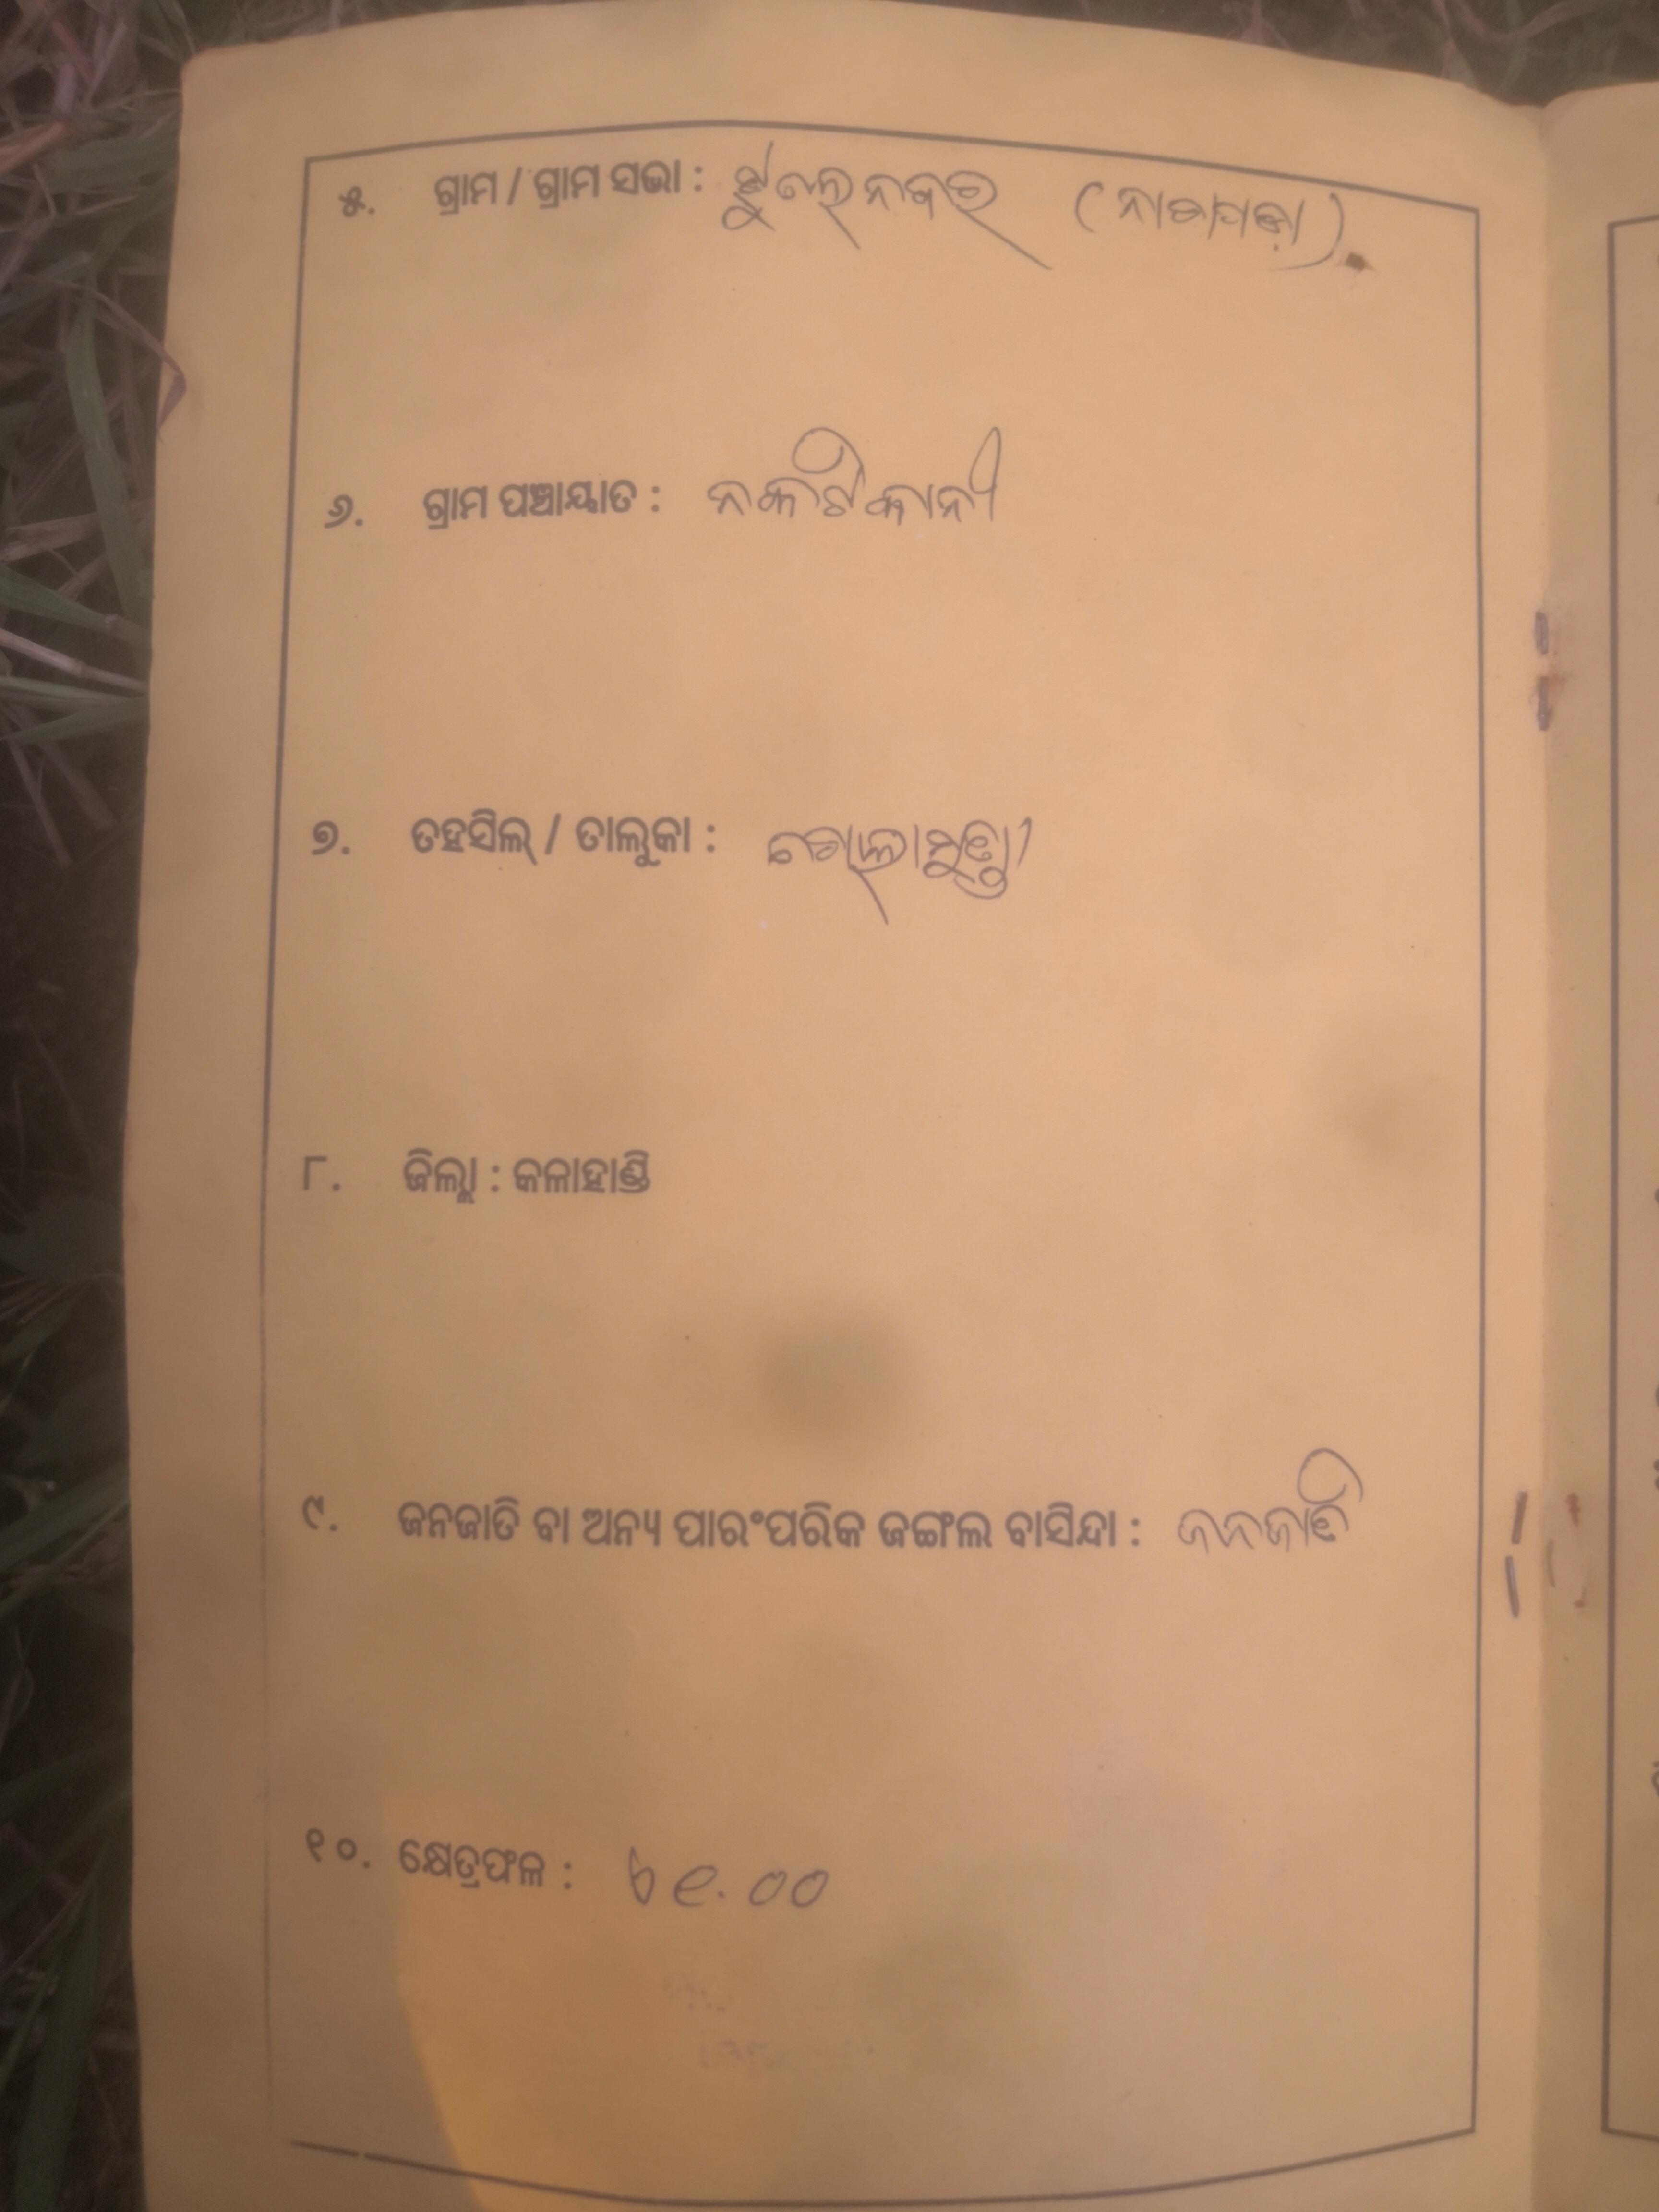 ୫. ଗ୍ରାମ / ଗ୍ରାମ ସଭା :
୬. ଗ୍ରାମ ପଞ୍ଚାୟାତ : ନକଟିକାନୀ
୭. ତହସିଲ୍ / ତାଲୁକା :
୮. ଜିଲ୍ଲା : କଳାହାଣ୍ଡି
୯. ଜନଜାତି ବା ଅନ୍ୟ ପାରଂପରିକ ଜଙ୍ଗଲ ବାସିନ୍ଦା : ଜନଜାତି
୧୦. କ୍ଷେତ୍ରଫଳ :